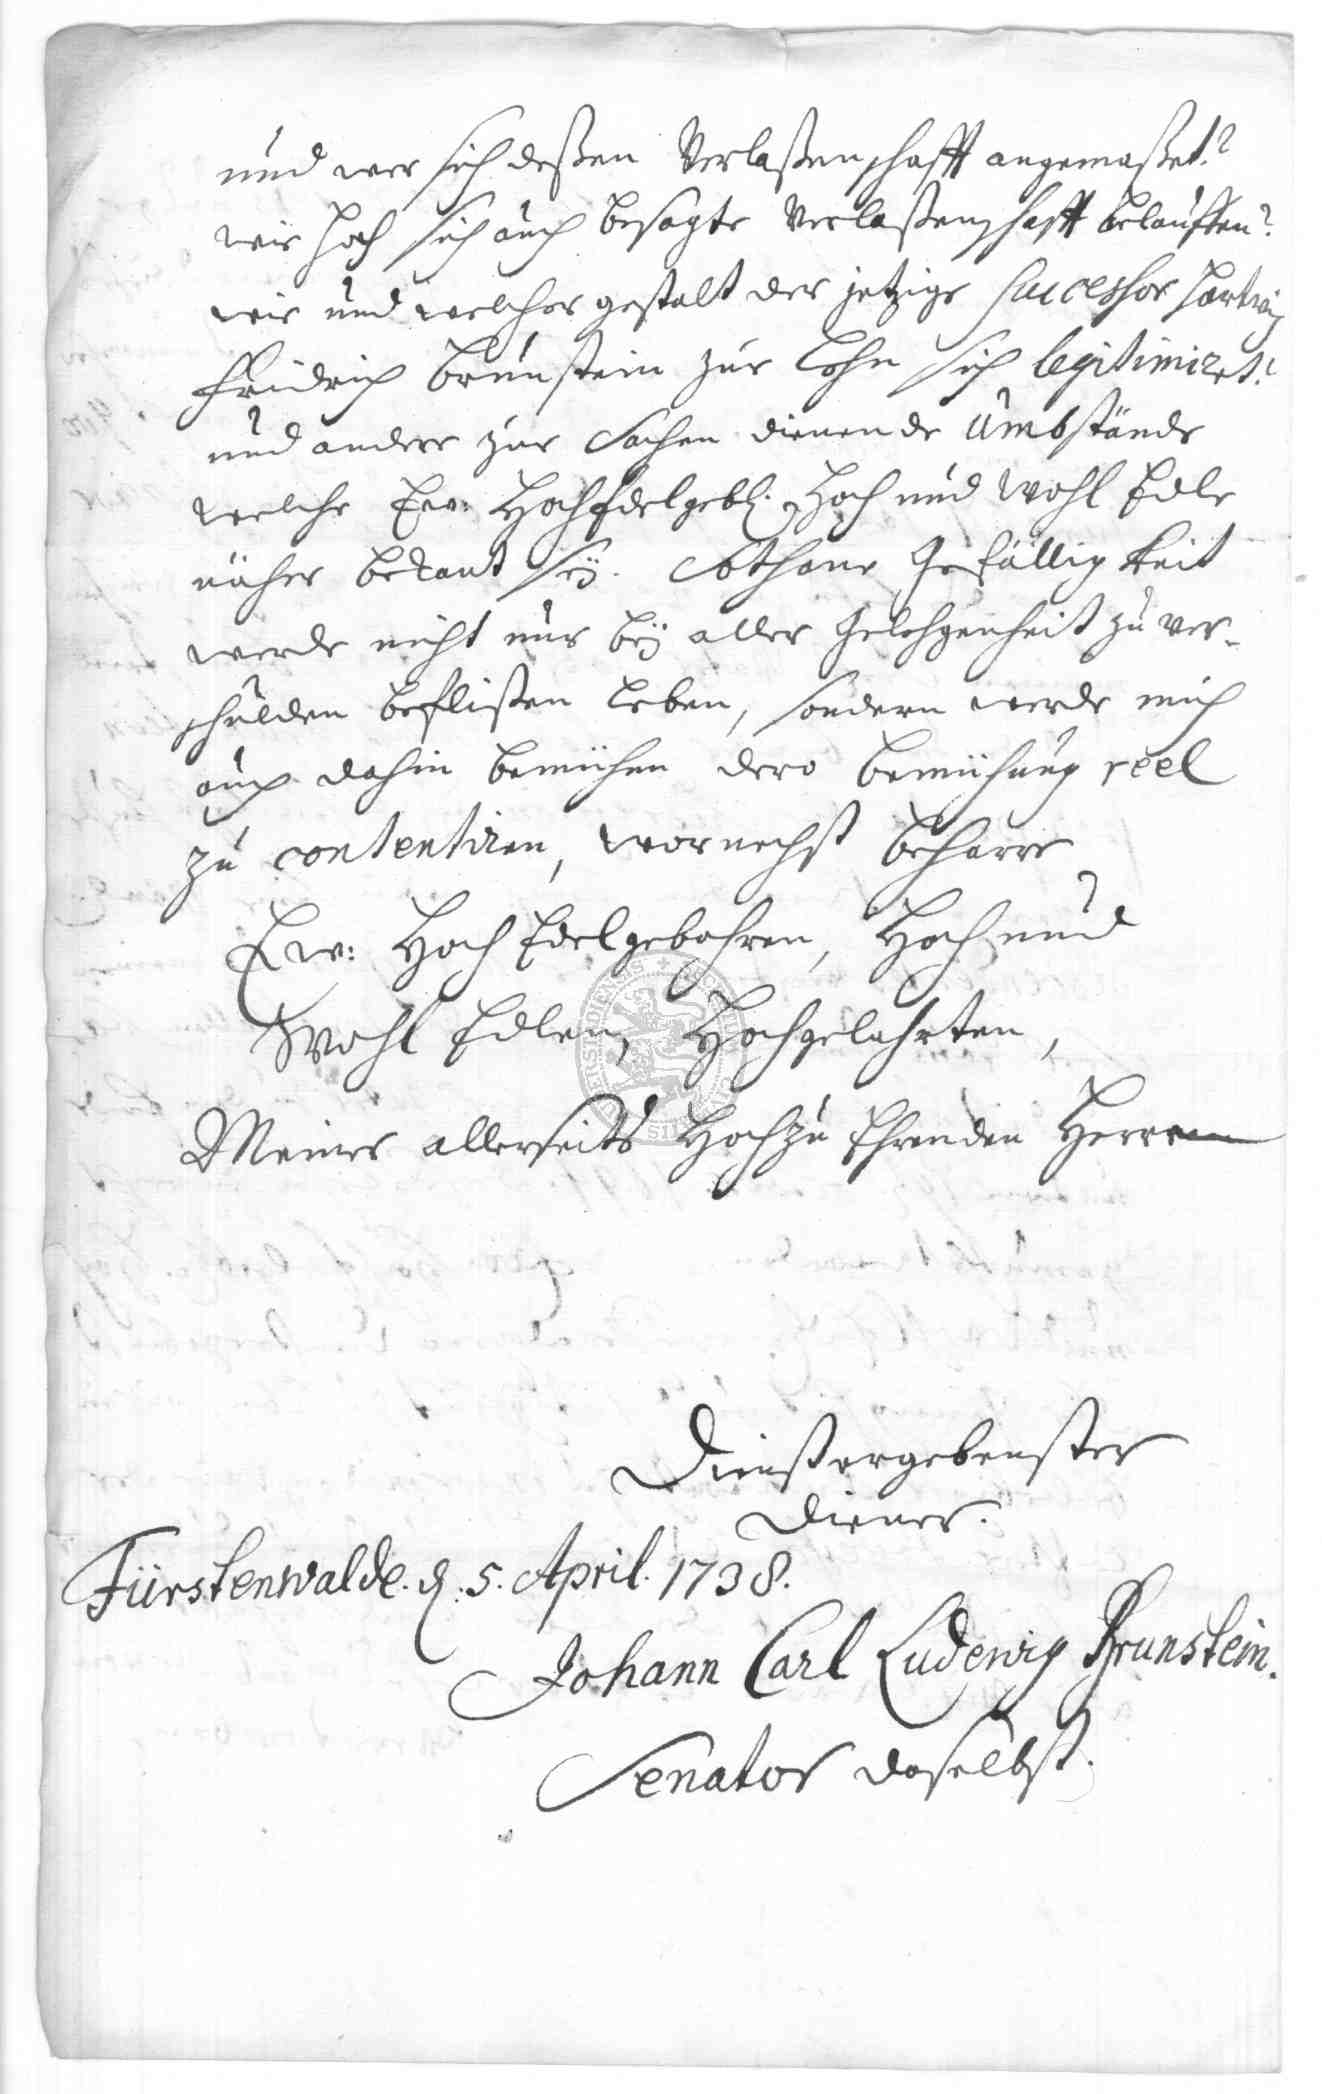 und wer sich deßen Verlaßenschafft angemaßet?
wie hoch sich auch besagte Verlaßenschafft belauffen?
wie und welcher gestalt der jetzige Successor Hartwig
Fridrich Brunstein zur Lehn sich legitimiret?
und andere zur Sachen dienende Umbstände
welche Ew: HochEdelgebl. Hoch und Wohl Edle
näher bekant seÿ. Sothane Gefälligkeit
werde nicht nur beÿ aller Gelehgenheit zu ver-
schulden beflißen leben, sondern werde mich
auch dahin bemühen dero bemühung reel
zu contentiren, wornechst beharre
Ew: Hoch Edelgebohren, Hoch und
Wohl Edlen, Hochgelahrten,
Meiner allerseits Hochzu Ehrenden Herrren
Dienstergebenster
Diener.
Fürstenwalde. d. 5. April. 1738.
Johann Carl Ludewig Brunstein.
Senator daselbst.